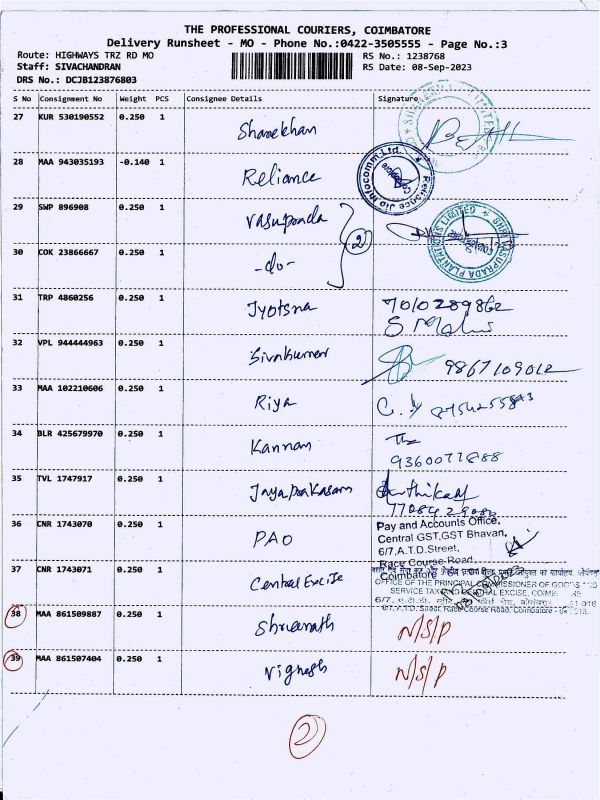 THE PROFESSIONAL COURIERS, COIMBATORE
Delivery Runsheet - MO - Phone No.:0422-3505555 - Page No.:3
Route: HIGHWAYS TRZ RD MO RS No.: 1238768
Staff: SIVACHANDRAN RS Date: 08-Sep-2023
DRS No.: DCJB123876803
S No Consignment No Weight PCS Consignee Details Signature
27 KUR 530190552 0.250 1 Sharekhan
28 MAA 943035193 -0.140 1 Reliance
Reliance Jio Infocomm Ltd.
29 SWP 896908 0.250 1 Vasuprada
PLANTATIONS LIMITED
30 COK 23866667 0.250 1 -do-
2
31 TRP 4860256 0.250 1 Jyotsna 7010289862
32 VPL 944444963 0.250 1 Sivakumar 9867109012
33 MAA 102210606 0.250 1 Riya
34 BLR 425679970 0.250 1 Kannan
9360077888
35 TVL 1747917 0.250 1 Jayaprakasam
36 CNR 1743070 0.250 1 PAO
Pay and Accounts Office,
Central GST,GST Bhavan,
6/7,A.T.D.Street,
Race Course Road,
Coimbatore
37 CNR 1743071 0.250 1 Central Excise
OFFICE OF THE PRINCIPAL COMMISSIONER OF
38 MAA 861509887 0.250 1 Shreenath N/S/P
39 MAA 861507404 0.250 1 Vignesh N/S/P
2